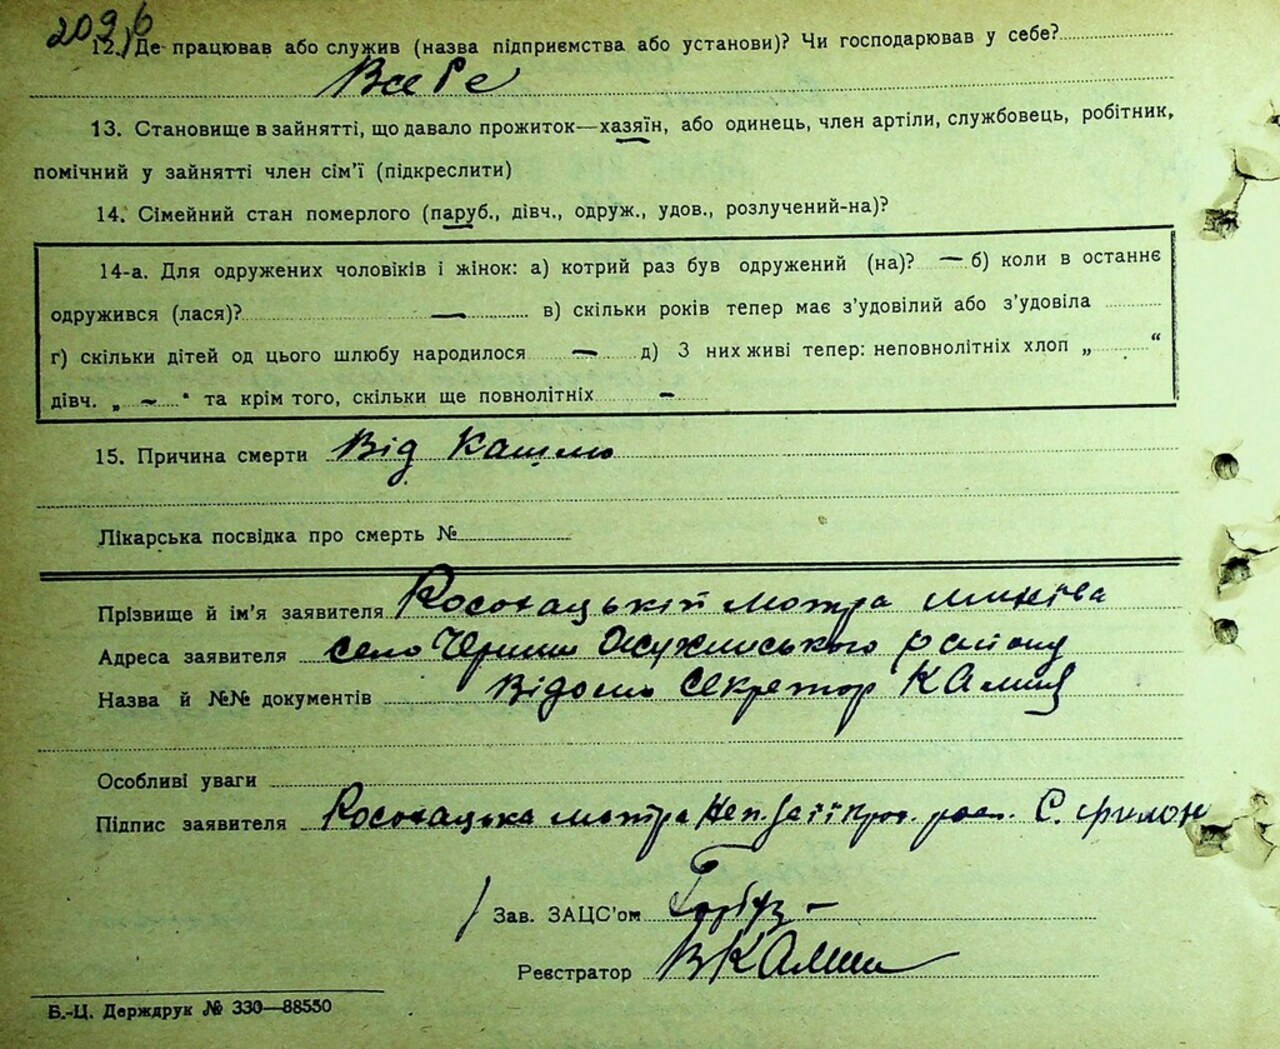 209б
12. Де працював або служив (назва підприємства або установи)? Чи господарював у себе?
В себе
13. Становище в зайнятті, що давало прожиток—хазяїн, або одинець, член артіли, службовець, робітник,
помічний у зайнятті член сім'ї (підкреслити)
14. Сімейний стан померлого (паруб., дівч., одруж., удов., розлучений-на)?
14-а. Для одружених чоловіків і жінок: а) котрий раз був одружений (на)? — б) коли в останнє
одружився (лася)? — в) скільки років тепер має з'удовілий або з'удовіла
г) скільки дітей од цього шлюбу народилося — д) З них живі тепер: неповнолітніх хлоп „ “
дівч. „ — “ та крім того, скільки ще повнолітніх —
15. Причина смерти Від кашлю
Лікарська посвідка про смерть №
Прізвище й ім'я заявителя Мотра
Адреса заявителя село району
Назва й №№ документів Відомо секретар
Особливі уваги
Підпис заявителя Мотра С.
Зав. ЗАЦС'ом
Реєстратор
Б.-Ц. Держдрук № 330—88550